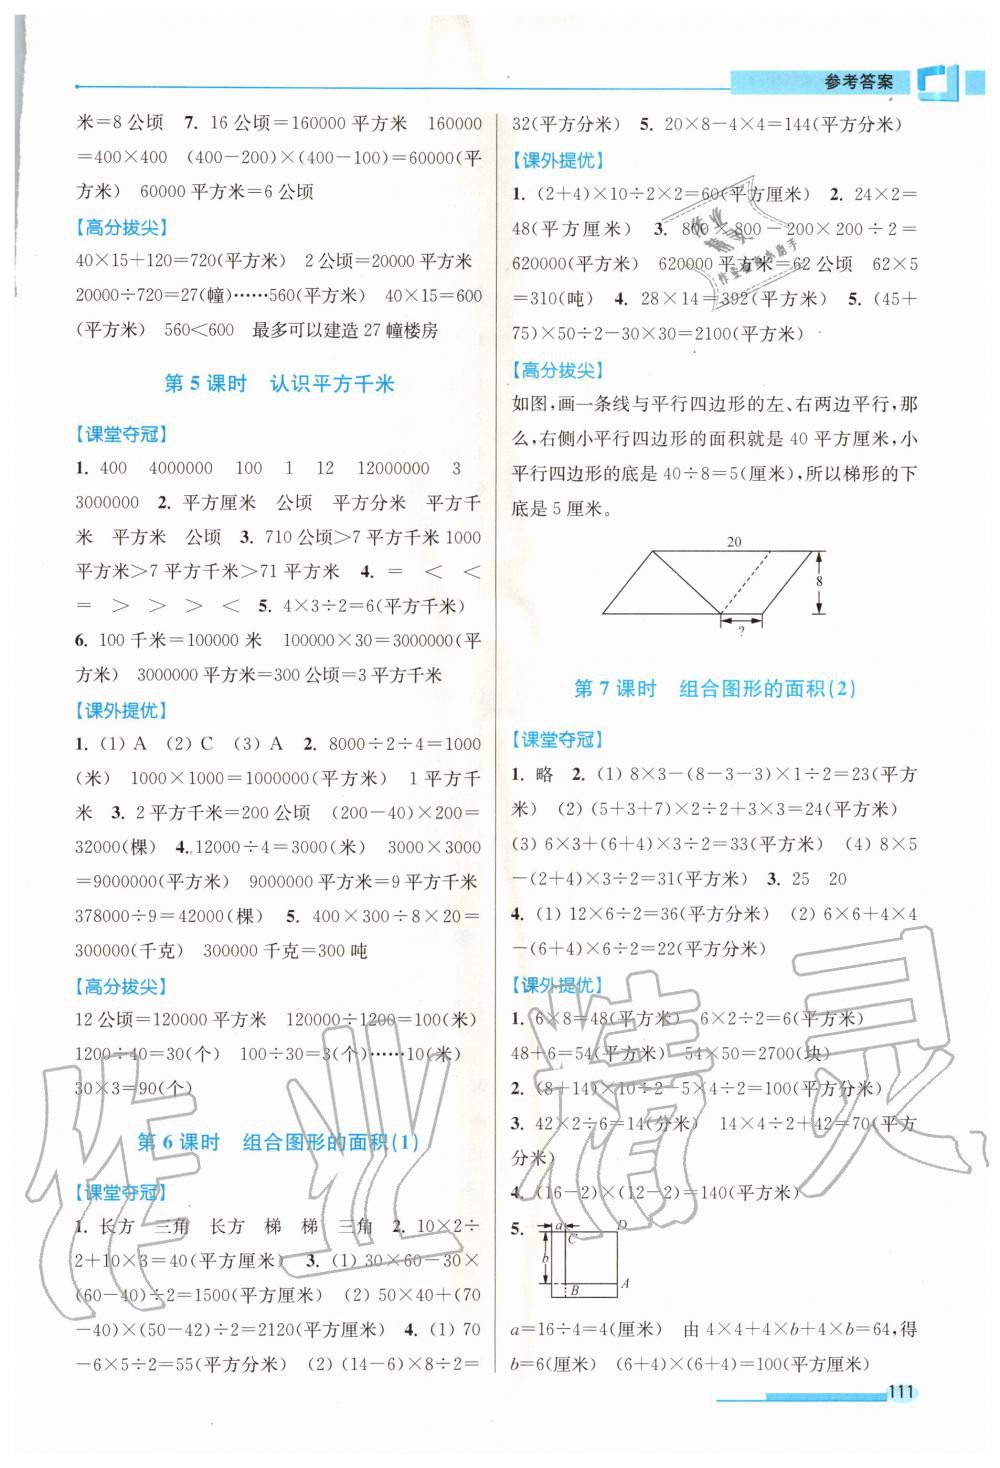 参考答案
米=8公顷 7. 16公顷=160000平方米 160000
=400×400 (400-200)×(400-100)=60000(平
方米) 60000平方米=6公顷
【高分拔尖】
40×15+120=720(平方米) 2公顷=20000平方米
20000÷720=27(幢)……560(平方米) 40×15=600
(平方米) 560<600 最多可以建造27幢楼房
第5课时 认识平方千米
【课堂夺冠】
1. 400 4000000 100 1 12 12000000 3
3000000 2. 平方厘米 公顷 平方分米 平方千
米 平方米 公顷 3. 710公顷>7平方千米1000
平方米>7平方千米>71平方米 4. = < <
= > > > < 5. 4×3÷2=6(平方千米)
6. 100千米=100000米 100000×30=3000000(平
方米) 3000000平方米=300公顷=3平方千米
【课外提优】
1. (1) A (2) C (3) A 2. 8000÷2÷4=1000
(米) 1000×1000=1000000(平方米) 1平方千
米 3. 2平方千米=200公顷 (200-40)×200=
32000(棵) 4. 12000÷4=3000(米) 3000×3000
=9000000(平方米) 9000000平方米=9平方千米
378000÷9=42000(棵) 5. 400×300÷8×20=
300000(千克) 300000千克=300吨
【高分拔尖】
12公顷=120000平方米 120000÷1200=100(米)
1200÷40=30(个) 100÷30=3(个)……10(米)
30×3=90(个)
第6课时 组合图形的面积(1)
【课堂夺冠】
1. 长方 三角 长方 梯 梯 三角 2. 10×2÷
2+10×3=40(平方厘米) 3. (1) 30×60-30×
(60-40)÷2=1500(平方厘米) (2) 50×40+(70
-40)×(50-42)÷2=2120(平方厘米) 4. (1) 70
-6×5÷2=55(平方分米) (2) (14-6)×8÷2=
32(平方分米) 5. 20×8-4×4=144(平方分米)
【课外提优】
1. (2+4)×10÷2×2=60(平方厘米) 2. 24×2=
48(平方厘米) 3. 800×800-200×200÷2=
620000(平方米) 620000平方米=62公顷 62×5
=310(吨) 4. 28×14=392(平方米) 5. (45+
75)×50÷2-30×30=2100(平方米)
【高分拔尖】
如图,画一条线与平行四边形的左、右两边平行,那
么,右侧小平行四边形的面积就是40平方厘米,小
平行四边形的底是40÷8=5(厘米),所以梯形的下
底是5厘米。
20
8
?
第7课时 组合图形的面积(2)
【课堂夺冠】
1. 略 2. (1) 8×3-(8-3-3)×1÷2=23(平方
米) (2) (5+3+7)×2÷2+3×3=24(平方米)
(3) 6×3+(6+4)×3÷2=33(平方米) (4) 8×5
-(2+4)×3÷2=31(平方米) 3. 25 20
4. (1) 12×6÷2=36(平方分米) (2) 6×6+4×4
-(6+4)×6÷2=22(平方分米)
【课外提优】
1. 6×8=48(平方米) 6×2÷2=6(平方米)
48+6=54(平方米) 54×50=2700(块)
2. (8+14)×10÷2-5×4÷2=100(平方分米)
3. 42×2÷6=14(分米) 14×4÷2+42=70(平方
分米)
4. (16-2)×(12-2)=140(平方米)
5. a D
C
b
B A
a=16÷4=4(厘米) 由4×4+4×b+4×b=64,得
b=6(厘米) (6+4)×(6+4)=100(平方厘米)
111
作业精灵